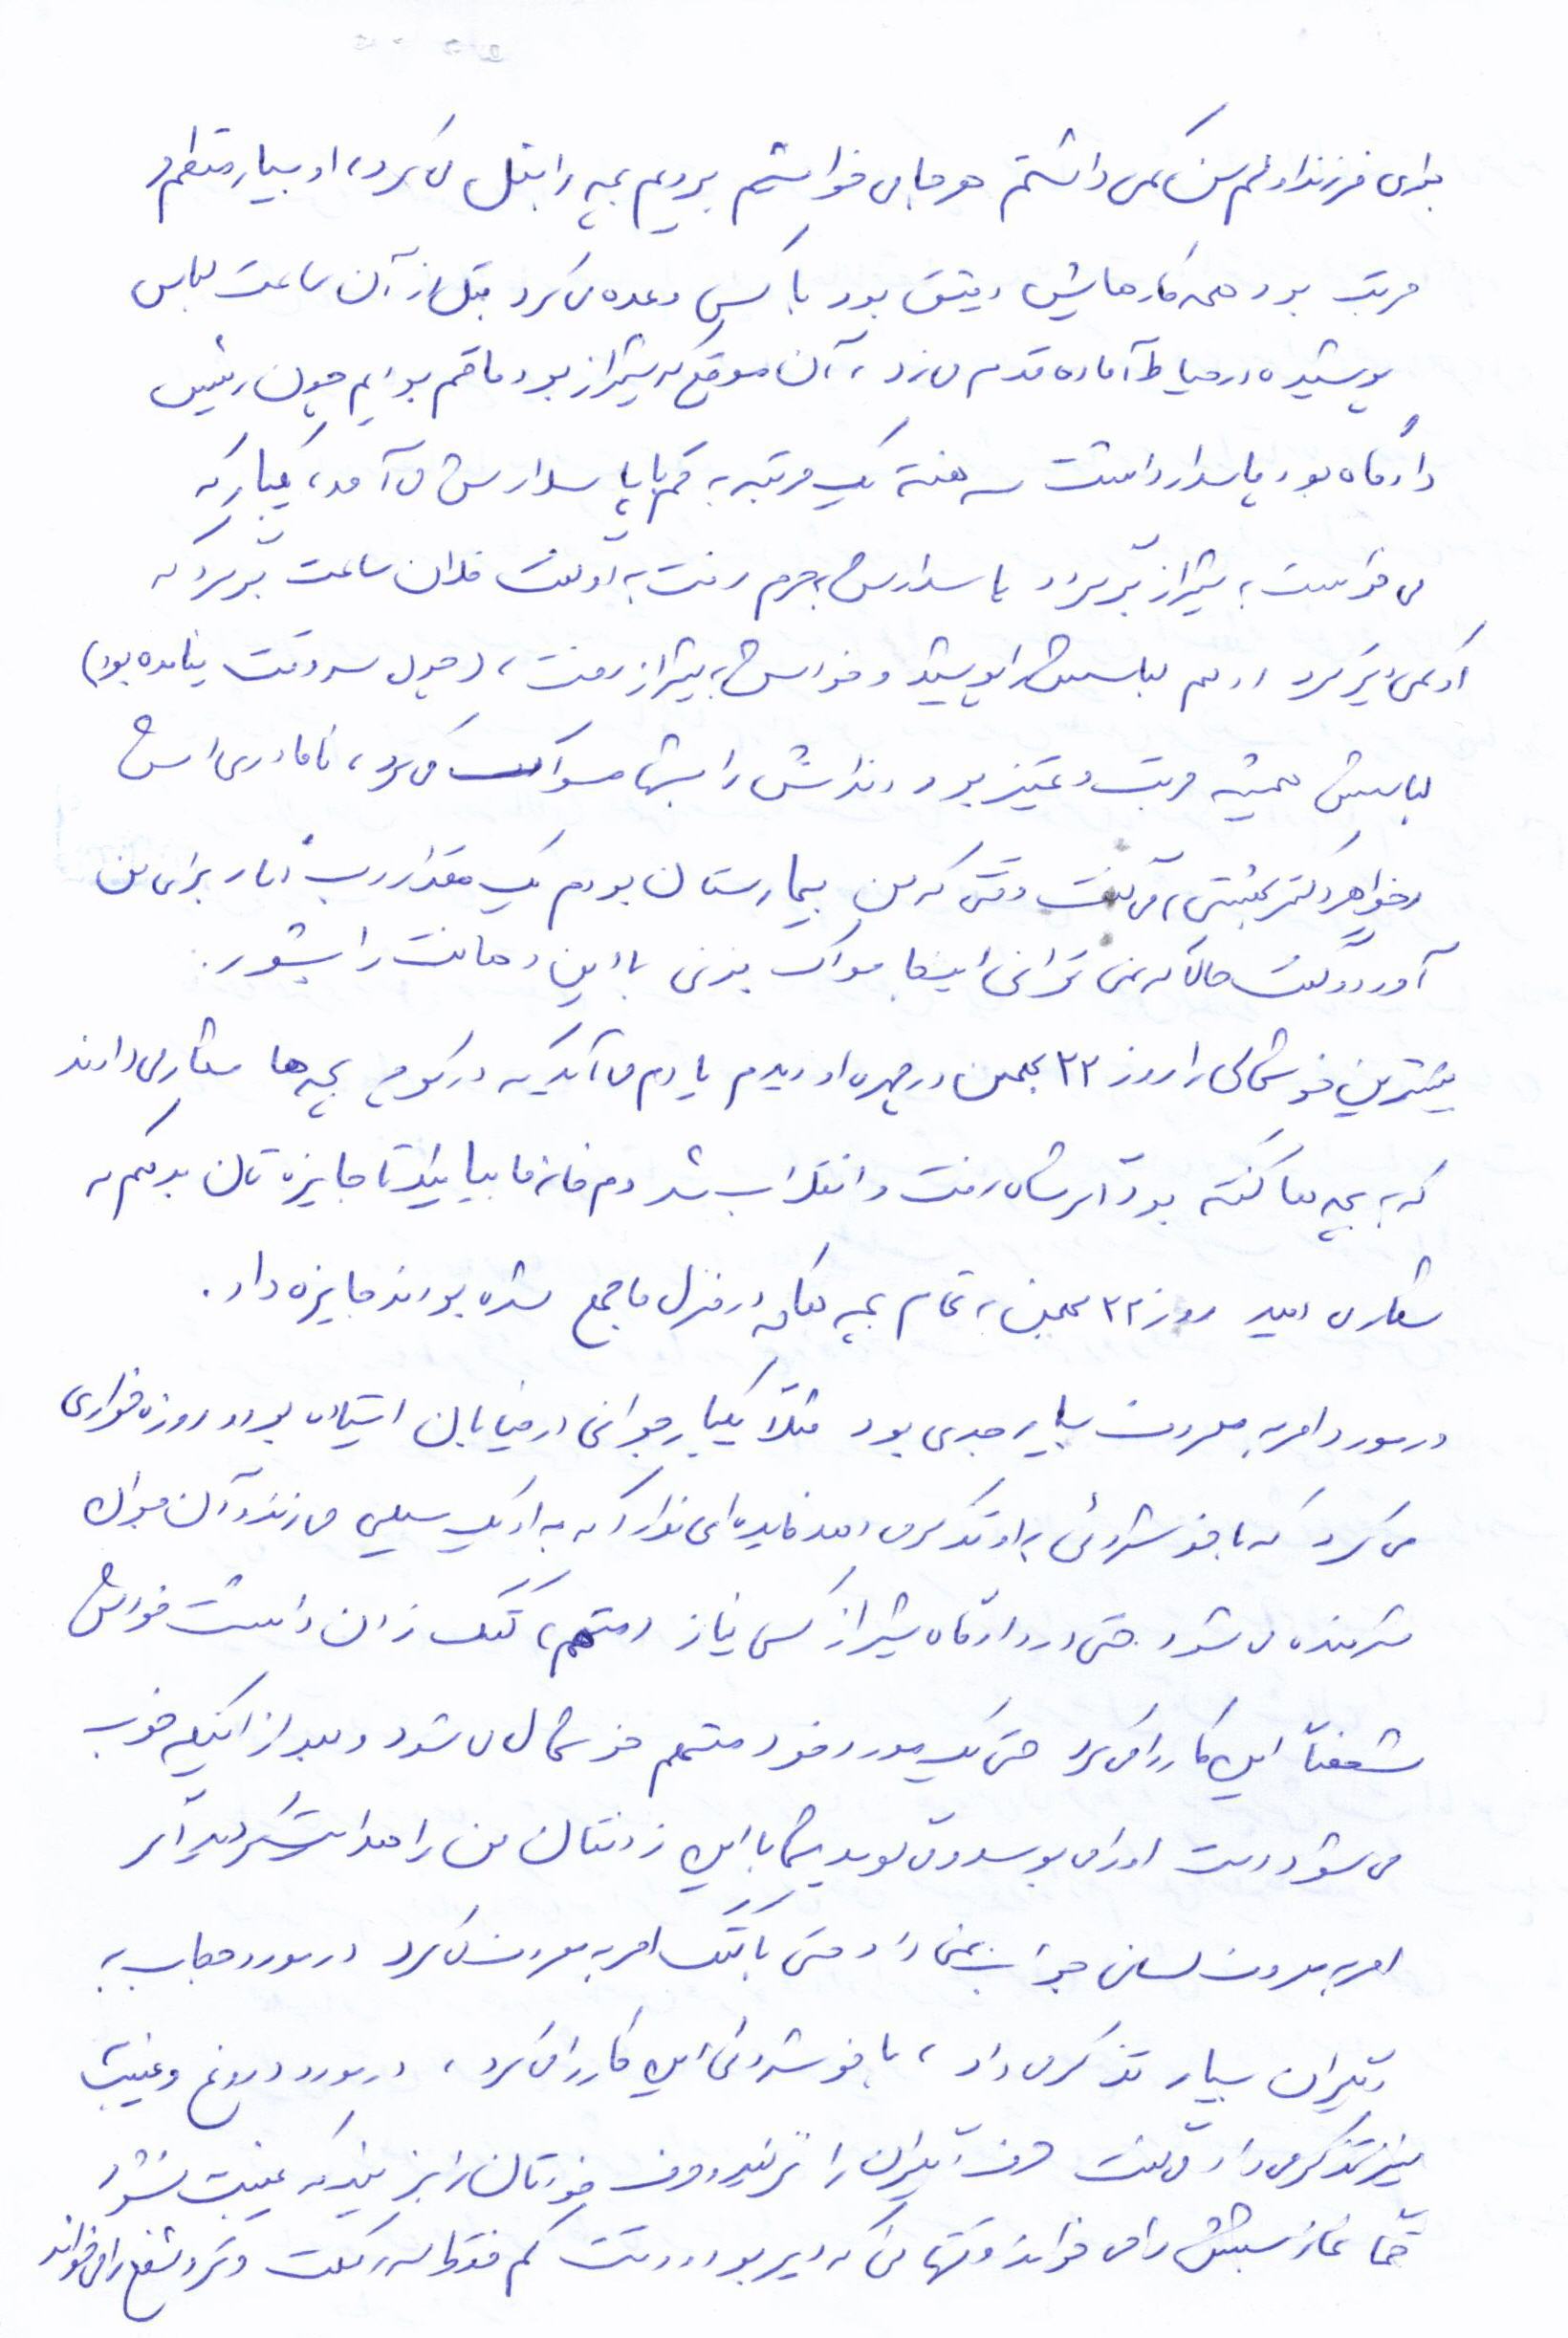 برای فرزند اولم سن کمی داشتم هر جا می خواستم برویم بچه را بغل می کرد، او بسیار منظم و
مرتب بود همه کارهایش دقیق بود با کسی وعده می کرد قبل از آن ساعت لباس
پوشیده در حیاط آماده قدم می زد، آن موقع که شیراز بود ما قم بودیم چون رئیس
دادگاه بود پاسدار داشت سه هفته یک مرتبه به قم با پاسدارش می آمد، یکبار که
می خواست به شیراز برگردد پاسدارش به حرم رفت به او گفت فلان ساعت برگرد که
او کمی دیر کرد او هم لباسش را پوشید و خودش به شیراز رفت، (چون سر وقت نیامده بود)
لباسش همیشه مرتب و تمیز بود دندانش را شبها مسواک می کرد، نامادری اش
(خواهر دکتر بهشتی) می گفت وقتی که من بیمارستان بودم یک مقدار رب انار برای من
آورد و گفت حالا که نمی توانی اینجا مسواک بزنی با این دهانت را بشور.
بیشترین خوشحالی را روز ۲۲ بهمن در چهره او دیدم یادم می آید که در کوچه بچه ها شعار می دادند
که به بچه ها گفته بود اگر شاه رفت و انقلاب شد دم خانه ما بیایید تا جایزه تان بدهم که
شعار می دهید روز ۲۲ بهمن به تمام بچه هایی که در منزل ما جمع شده بودند جایزه داد.
در مورد امر به معروف بسیار جدی بود مثلاً یکبار جوانی در خیابان ایستاده بود و روزه خواری
می کرد که با خوشروئی به او تذکر می دهد فایده ای ندارد که به او یک سیلی می زند و آن جوان
شرمنده می شود حتی در دادگاه شیراز کسی نیاز (متهم) کتک زدن داشت خودش
شخصاً این کار را می کرد حتی یک مورد خود متهم خوشحال می شود و بعد از اینکه خوب
می شود دست او را می بوسد و می گوید شما با این زدنتان من را هدایت کردید اگر
امر به معروف لسانی جواب نمی داد حتی با کتک امر به معروف می کرد در مورد حجاب به
دیگران بسیار تذکر می داد، با خوشروئی این کار را می کرد، در مورد دروغ و غیبت
نیز تذکر می داد و می گفت حرف دیگران را نزنید و حرف خودتان را بزنید که غیبت نشود
حتماً نماز شبش را می خواند وقتهائی که دیر بود و وقت کم فقط سه رکعت وتر و شفع را می خواند